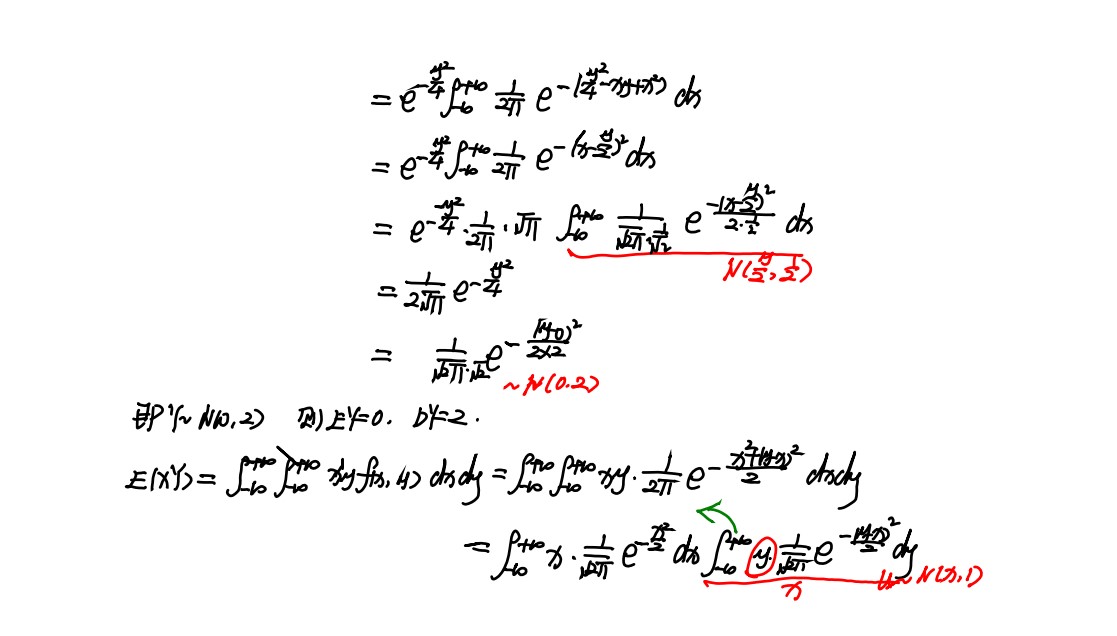 = e^{-\frac{y^2}{4}} \int_{-\infty}^{+\infty} \frac{1}{2\pi} e^{-(\frac{y^2}{4}-xy+x^2)} dx
= e^{-\frac{y^2}{4}} \int_{-\infty}^{+\infty} \frac{1}{2\pi} e^{-(x-\frac{y}{2})^2} dx
= e^{-\frac{y^2}{4}} \cdot \frac{1}{2\pi} \cdot \sqrt{\pi} \int_{-\infty}^{+\infty} \frac{1}{\sqrt{2\pi} \cdot \frac{1}{\sqrt{2}}} e^{-\frac{(x-\frac{y}{2})^2}{2 \cdot \frac{1}{2}}} dx
N(\frac{y}{2}, \frac{1}{2})
= \frac{1}{2\sqrt{\pi}} e^{-\frac{y^2}{4}}
= \frac{1}{\sqrt{2\pi} \cdot \sqrt{2}} e^{-\frac{(y-0)^2}{2×2}}
~N(0.2)
即Y~N(0,2) 则EY=0. DY=2.
E(XY) = \int_{-\infty}^{+\infty} \int_{-\infty}^{+\infty} xyf(x,y) dxdy = \int_{-\infty}^{+\infty} \int_{-\infty}^{+\infty} xy \cdot \frac{1}{2\pi} e^{-\frac{x^2+(y-x)^2}{2}} dxdy
= \int_{-\infty}^{+\infty} x \cdot \frac{1}{\sqrt{2\pi}} e^{-\frac{x^2}{2}} dx \int_{-\infty}^{+\infty} y \cdot \frac{1}{\sqrt{2\pi}} e^{-\frac{(y-x)^2}{2}} dy
x y~N(x,1)